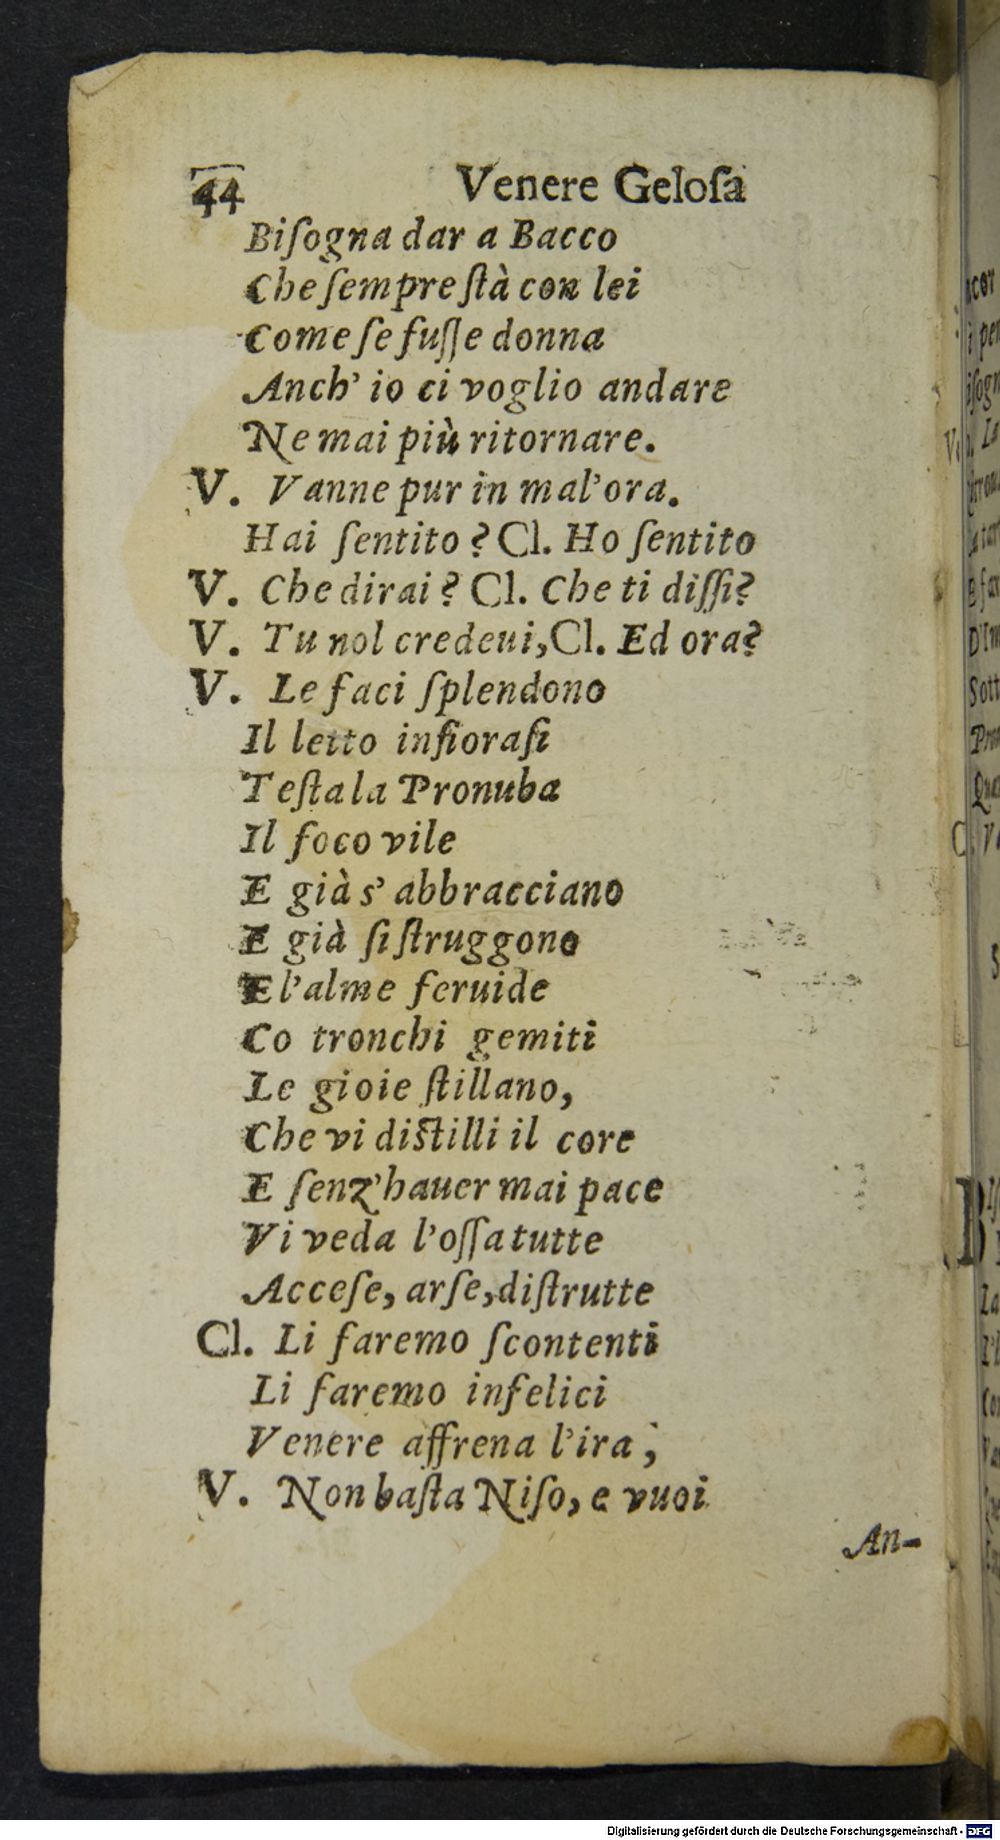 44 Venere Geloſa
Biſogna dar a Bacco
Che ſempre ſtà con lei
Come ſe fuſſe donna
Anch' io ci voglio andare
Ne mai più ritornare.
V. Vanne pur in mal'ora.
Hai ſentito? Cl. Ho ſentito
V. Che dirai? Cl. Che ti diſſi?
V. Tu nol credeui, Cl. Ed ora?
V. Le faci ſplendono
Il letto infioraſi
Teſta la Pronuba
Il foco vile
E già s' abbracciano
E già ſi ſtruggono
E l'alme feruide
Co tronchi gemiti
Le gioie ſtillano,
Che vi diſtilli il core
E ſenz'hauer mai pace
Vi veda l'oſſa tutte
Acceſe, arſe, diſtrutte
Cl. Li faremo ſcontenti
Li faremo infelici
Venere affrena l'ira,
V. Non baſta Niſo, e vuoi
An-
Digitalisierung gefördert durch die Deutsche Forschungsgemeinschaft - DFG